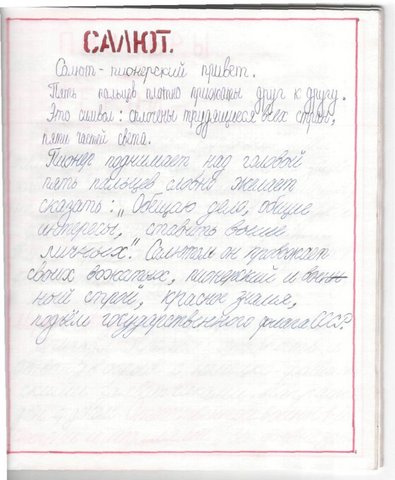 САЛЮТ.
Салют - пионерский привет.
Пять пальцев плотно прижаты друг к другу.
Это символ: сплочены трудящиеся всех стран,
пяти частей света.
Пионер поднимает над головой
пять пальцев словно желает
сказать: „Общаю дела, общие
интересы, ставить выше
личных". Салютом он провожает
своих вожатых, пионерский и воен-
ный строй, красное знамя,
подъём государственного флага СССР.